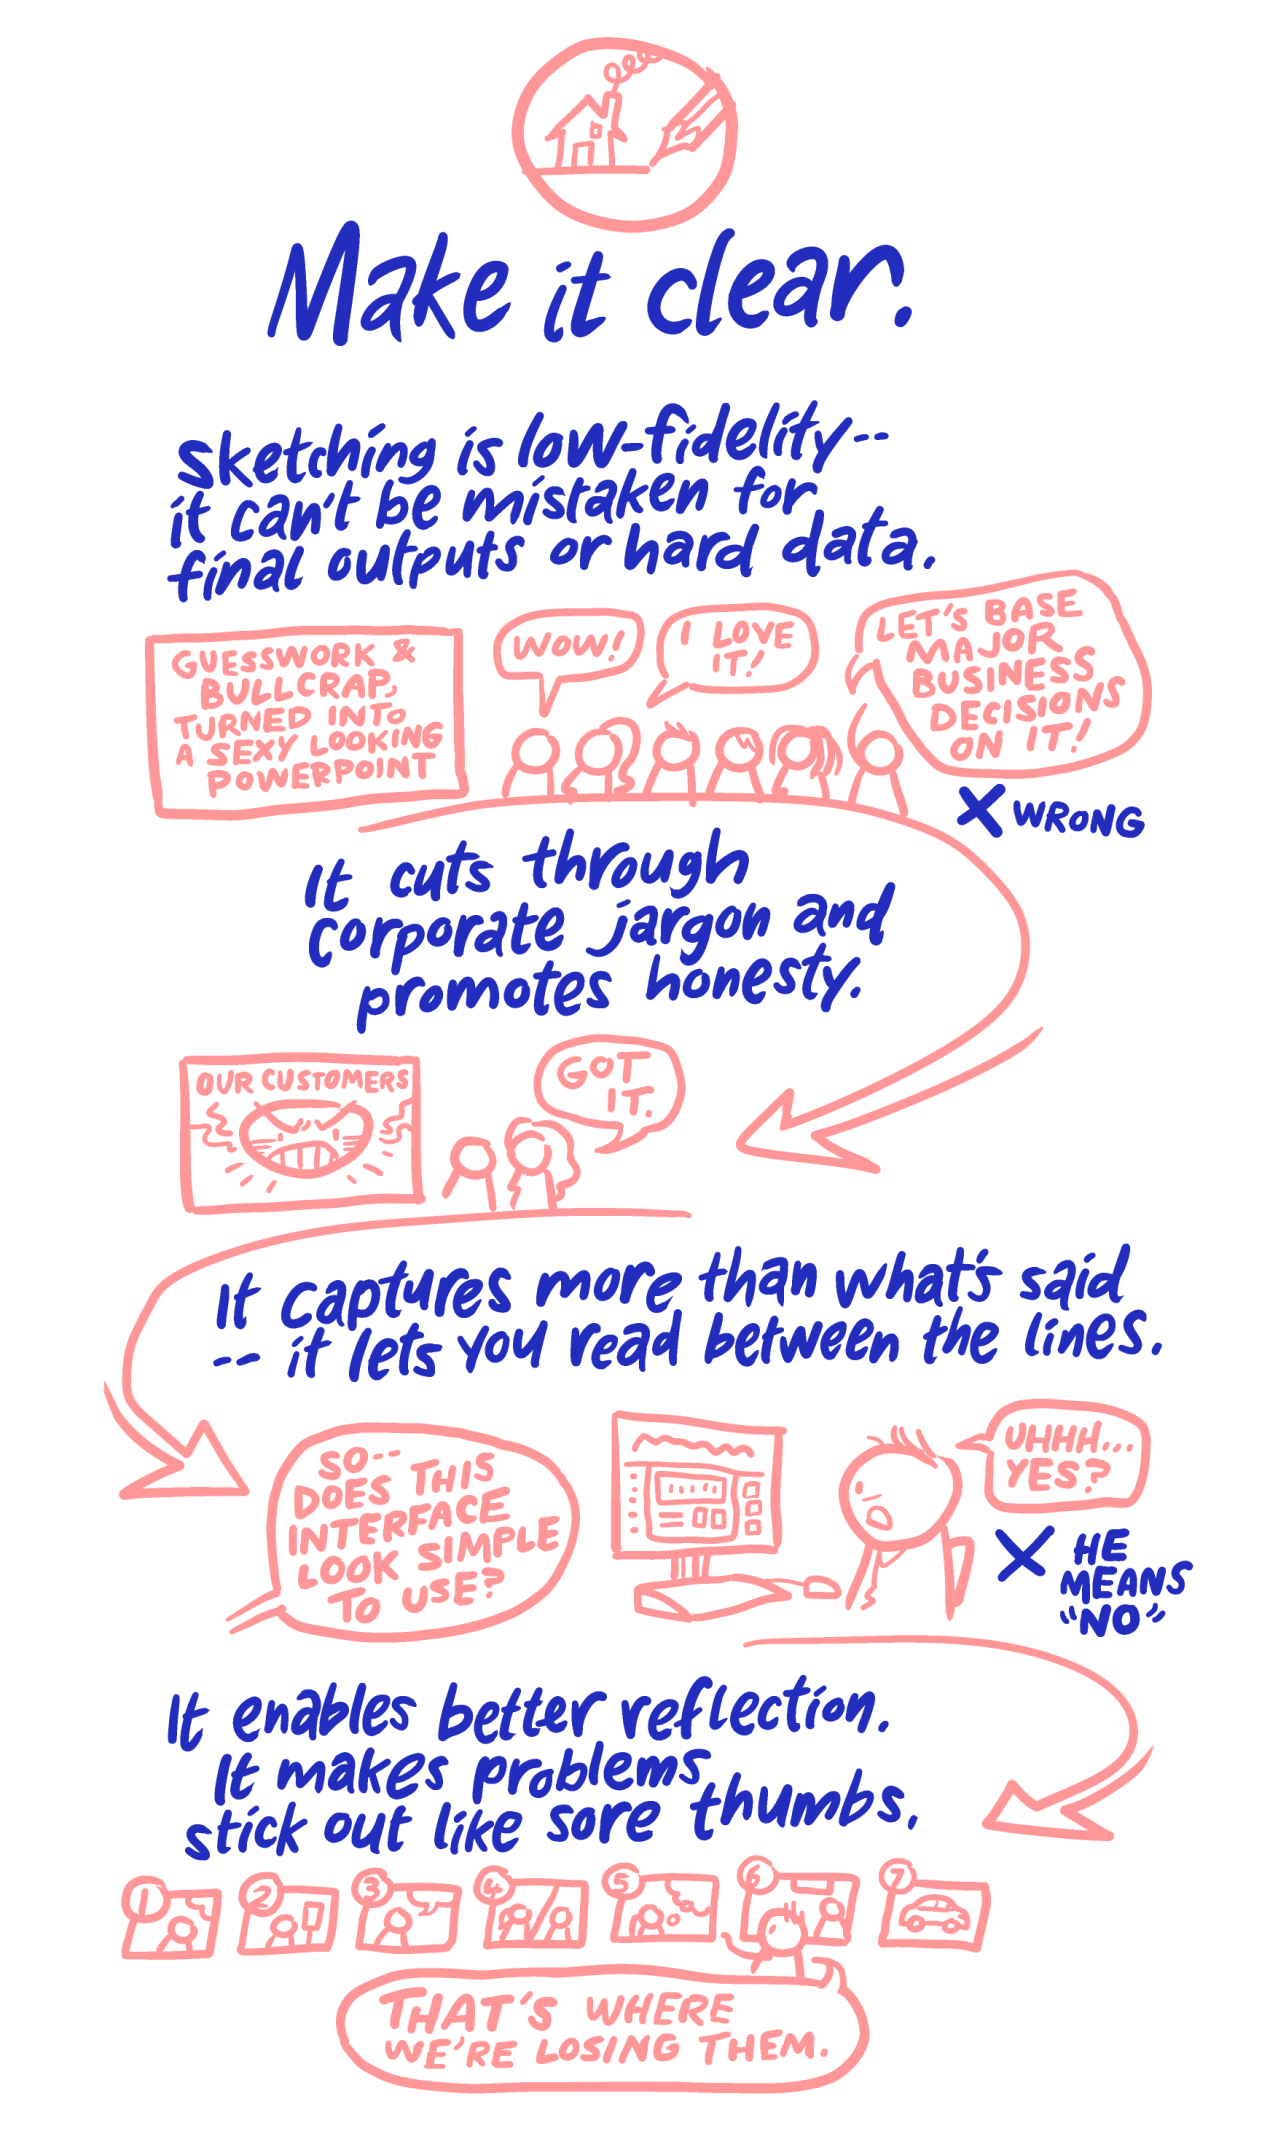 Make it clear.
Sketching is low-fidelity--
it can't be mistaken for
final outputs or hard data.
GUESSWORK &
BULLCRAP,
TURNED INTO
A SEXY LOOKING
POWERPOINT
WOW!
I LOVE
IT!
LET'S BASE
MAJOR
BUSINESS
DECISIONS
ON IT!
X WRONG
It cuts through
corporate jargon and
promotes honesty.
OUR CUSTOMERS
GOT
IT.
It captures more than what's said
-- it lets you read between the lines.
SO--
DOES THIS
INTERFACE
LOOK SIMPLE
TO USE?
UHHH...
YES?
X HE
MEANS
"NO"
It enables better reflection.
It makes problems
stick out like sore thumbs.
1 2 3 4 5 6 7
THAT'S WHERE
WE'RE LOSING THEM.